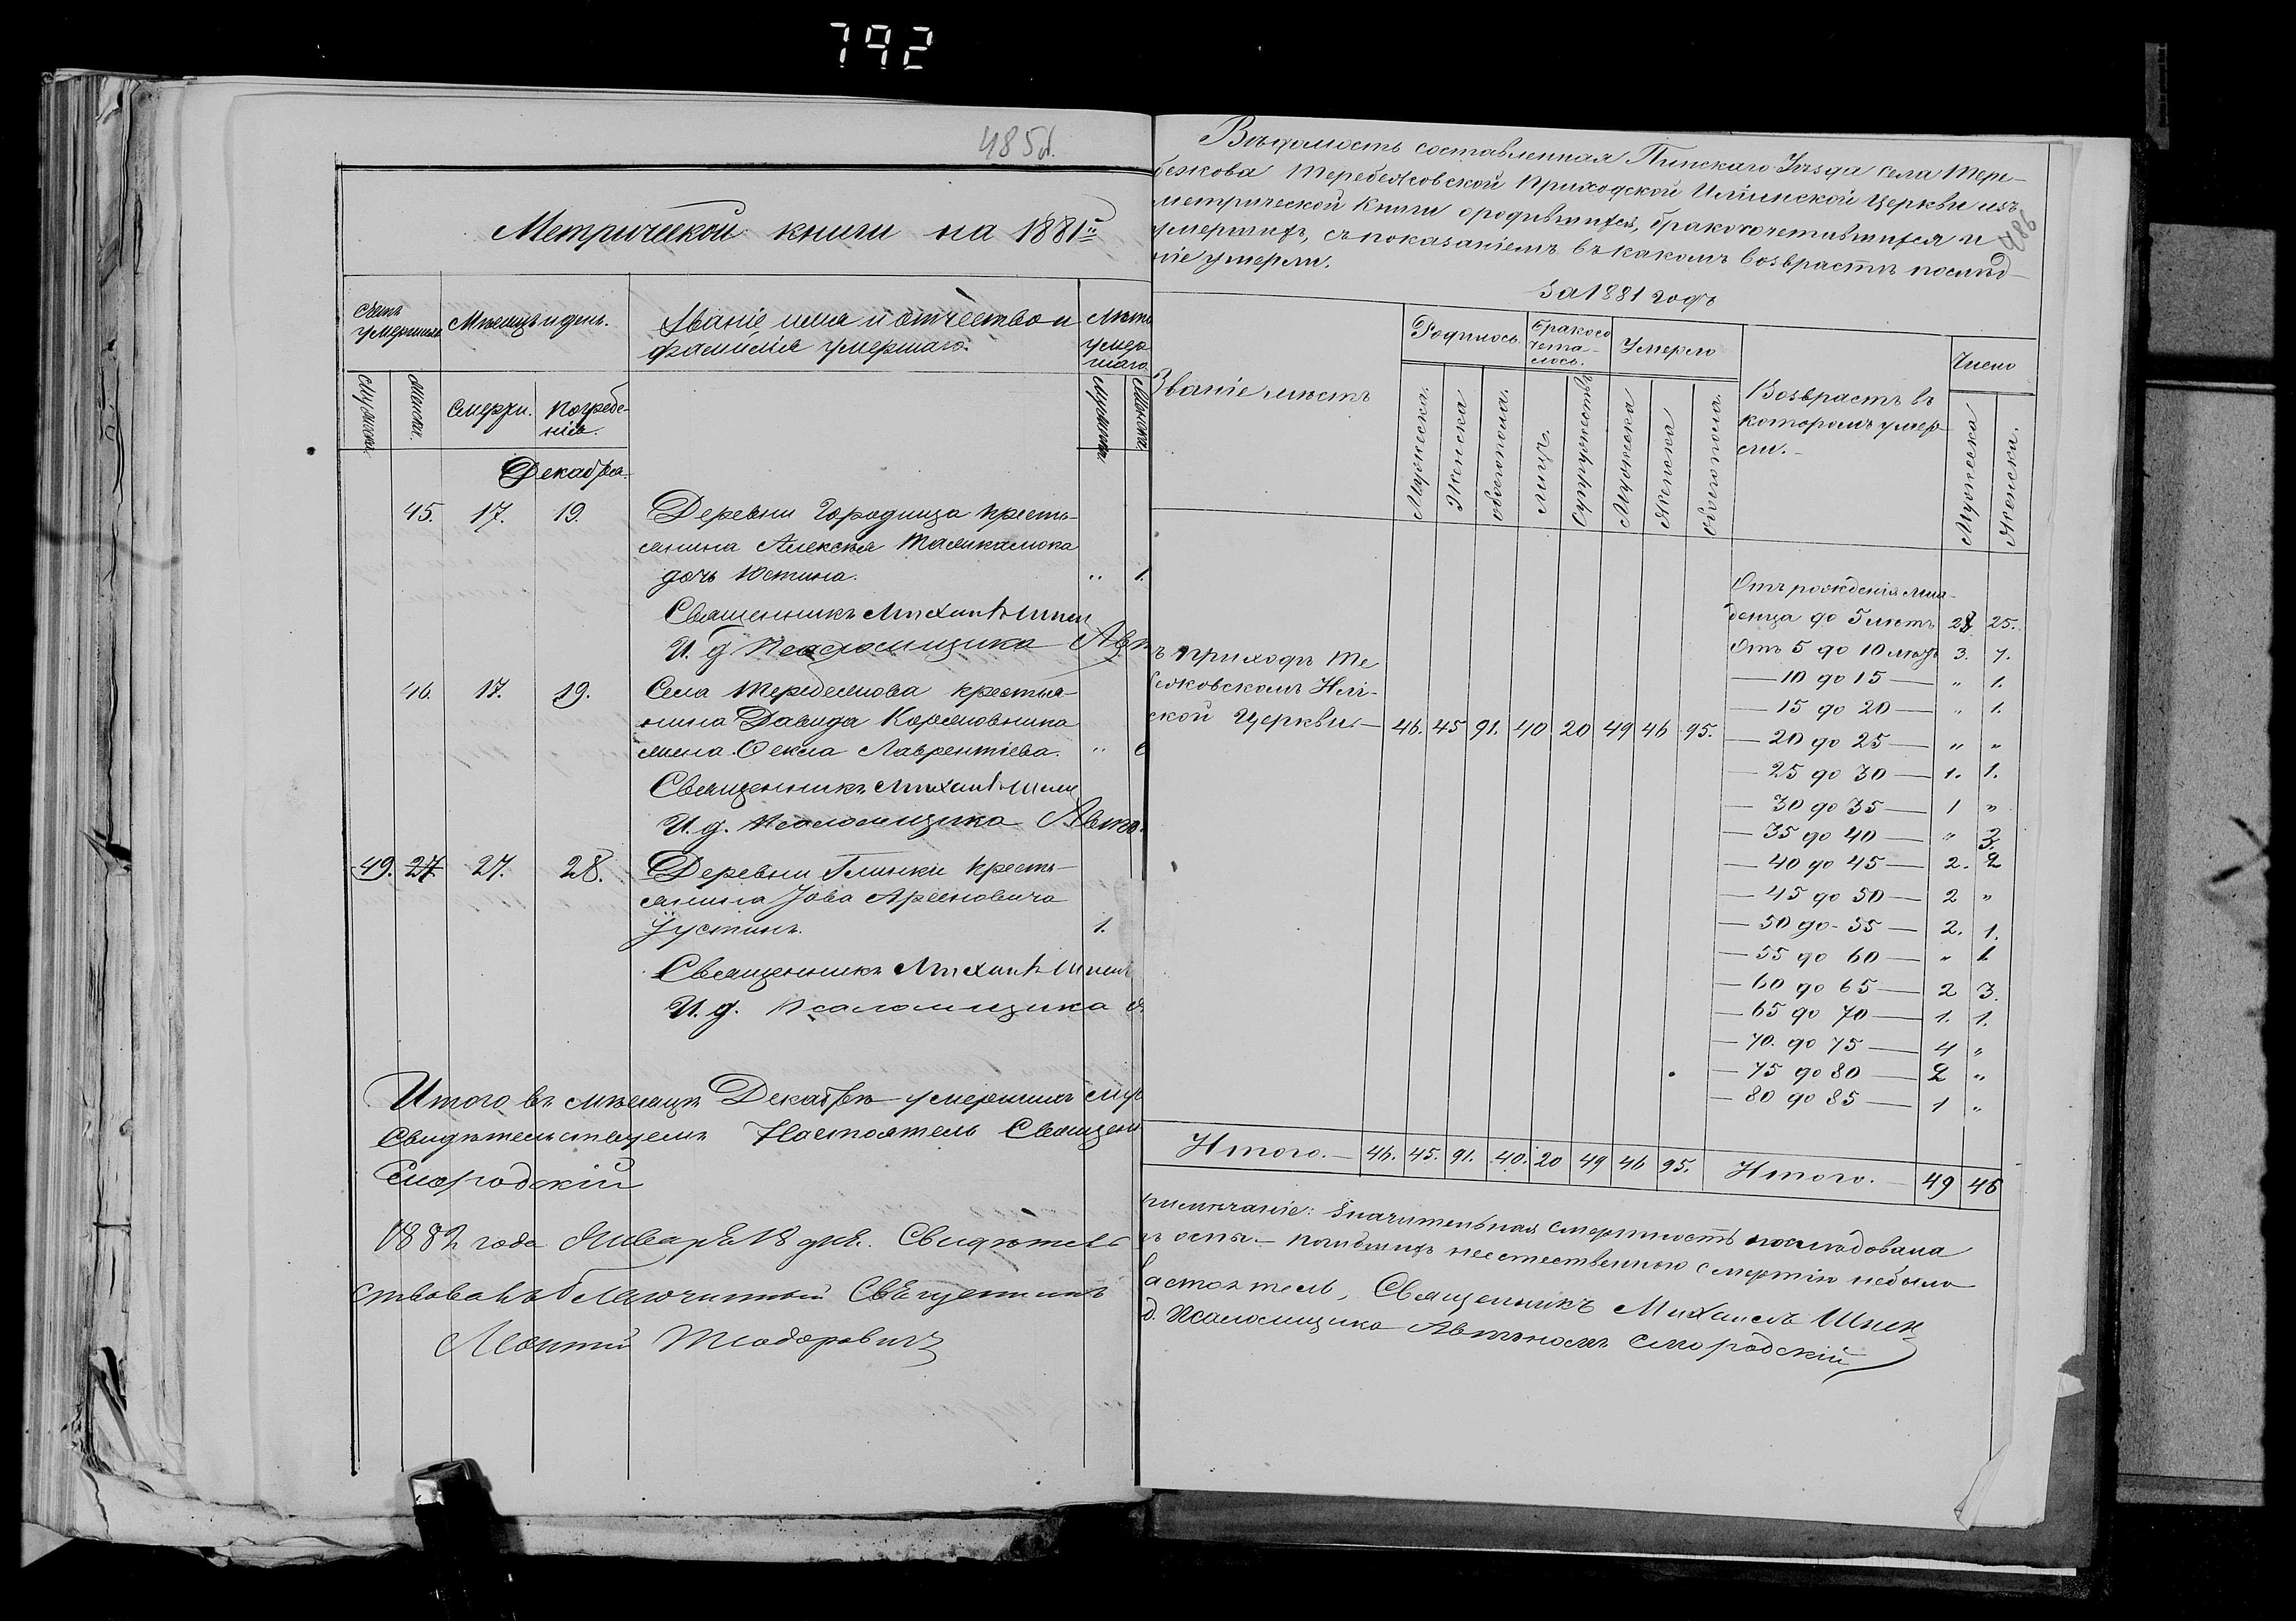 792
485 об.
Метрической книги на 1881й
Счетъ умершихъ
Мѣсяцъ и день.
Званіе имя и отчество и фамилія умершаго.
Лѣта умершаго
Мужска
Женска.
Смерти.
Погребенія.
Мужеска
Женска
Декабрь
45. 17. 19. Деревни Городища кресть-
янина Алексѣя
дочь Юстина. " 1.
Священникъ Михаилъ
И. д. Псаломщика
46. 17. 19. Села Теребежова крестья-
нина Давида
жена Ѳекла Лаврентіева. "
Священникъ Михаилъ
И. д. Псаломщика
49. 27. 27. 28. Деревни Глинки кресть-
янина Іова Арсеновича
Іустинъ. 1.
Священникъ Михаилъ
И. д. Псаломщика
Итого въ мѣсяцѣ Декабрѣ умершихъ
Свидѣтельствуемъ Настоятель Священ
Смородскій
1882 года Января 18 дня. Свидѣтель
ствовалъ Благочинный Священникъ
Леонтій Теодоровичъ
486
Вѣдомость составленная Пинскаго Уѣзда села Тере-
бежова Теребежовской Приходской Ильинской Церкви изъ
метрической Книги о родившихся, бракосочетавшихся и
умершихъ, съ показаніемъ въ какомъ возврастѣ послѣд-
ніе умерли.
За 1881 годъ
Званіе мѣстъ
Родилось
Бракосо
чета-
лось.
Умерло
Возврастъ въ
которомъ умер
ли.-
Число
Мужеска.
Женска
обоего пола.
Лицъ.
Супружествъ
Мужеска
Женска
Обоего пола.
Мужеска
Женска.
Отъ рожденія мла-
денца до 5 лѣтъ 28 25.
Отъ 5 до 10 лѣтъ 3. 7.
ъ приходѣ Те
бежковскомъ Илі-
ской Церкви.- 46. 45 91. 40 20 49 46 95.
— 10 до 15 — " 1.
— 15 до 20 — " 1.
— 20 до 25 — " "
— 25 до 30 — 1. 1.
— 30 до 35 — 1 "
— 35 до 40 — " 3.
— 40 до 45 — 2. 2
— 45 до 50 — 2 "
— 50 до 55 — 2. 1.
— 55 до 60 — " 1
— 60 до 65 — 2 3.
— 65 до 70 — 1. 1.
— 70. до 75 — 4 "
— 75 до 80 — 2 "
— 80 до 85 — 1 "
Итого.- 46. 45. 91. 40. 20 49 46 95. Итого. 49 46
римѣчаніе: Значительная смертность послѣдовала
ъ оспы.- погибшихъ неестественною смертію небыло
астоятель, Священникъ Михаилъ
д. Псаломщика Автономъ Смородскій